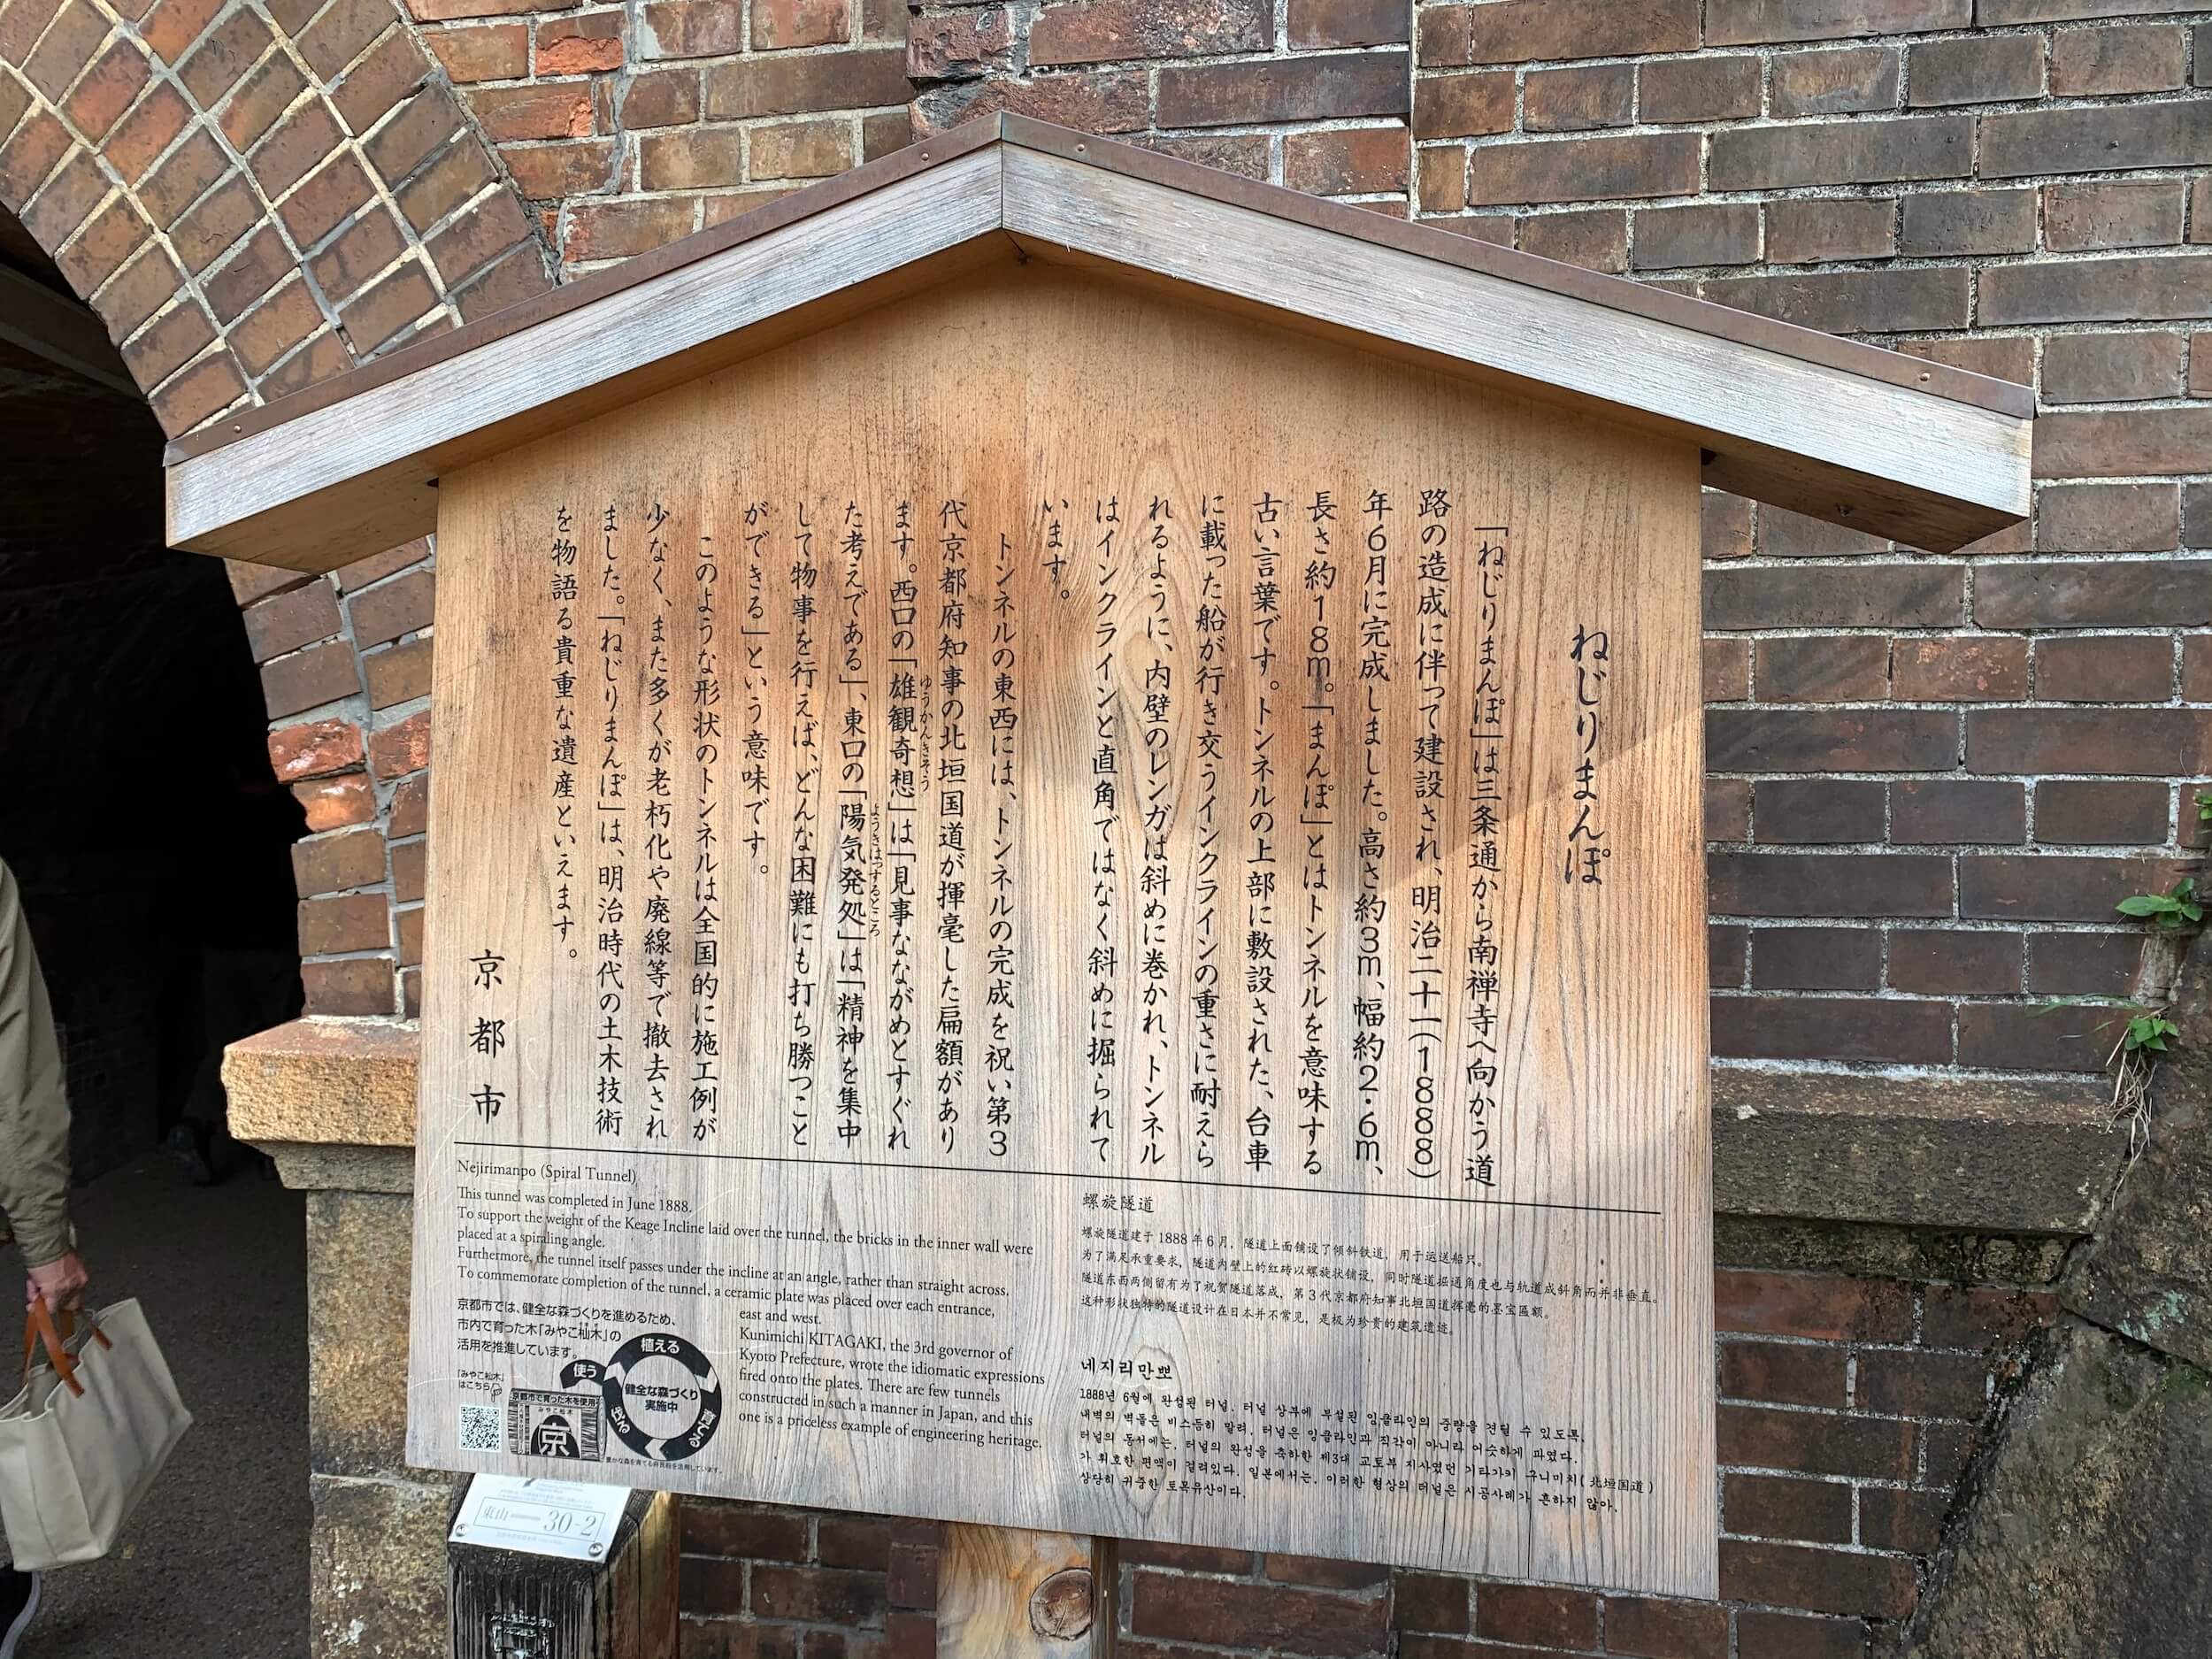 ねじりまんぽ
「ねじりまんぽ」は三条通から南禅寺へ向かう道
路の造成に伴って建設され、明治二十一(1888)
年6月に完成しました。高さ約3m、幅約2.6m、
長さ約18m。「まんぽ」とはトンネルを意味する
古い言葉です。トンネルの上部に敷設された、台車
に載った船が行き交うインクラインの重さに耐えら
れるように、内壁のレンガは斜めに巻かれ、トンネル
はインクラインと直角ではなく斜めに掘られて
います。
トンネルの東西には、トンネルの完成を祝い第3
代京都府知事の北垣国道が揮毫した扁額があり
ます。西口の「雄観奇想」は「見事なながめとすぐれ
ゆうかんきそう
た考えである」、東口の「陽気発処」は「精神を集中
ようきはつするところ
して物事を行えば、どんな困難にも打ち勝つこと
ができる」という意味です。
このような形状のトンネルは全国的に施工例が
少なく、また多くが老朽化や廃線等で撤去され
ました。「ねじりまんぽ」は、明治時代の土木技術
を物語る貴重な遺産といえます。
京都市
Nejirimanpo (Spiral Tunnel)
This tunnel was completed in June 1888.
To support the weight of the Keage Incline laid over the tunnel, the bricks in the inner wall were
placed at a spiraling angle.
Furthermore, the tunnel itself passes under the incline at an angle, rather than straight across.
To commemorate completion of the tunnel, a ceramic plate was placed over each entrance,
east and west.
Kunimichi KITAGAKI, the 3rd governor of
Kyoto Prefecture, wrote the idiomatic expressions
fired onto the plates. There are few tunnels
constructed in such a manner in Japan, and this
one is a priceless example of engineering heritage.
京都市では、健全な森づくりを進めるため、
市内で育った木「みやこ杣木」の
活用を推進しています。
「みやこ杣木」
はこちら
植える
育てる
伐る
使う
健全な森づくり
実施中
京都市で育った木を使用
みやこ杣木
京
豊かな森を育てる府民税を活用しています。
螺旋隧道
螺旋隧道建于 1888 年 6 月，隧道上面铺设了倾斜铁道，用于运送船只。
为了满足承重要求，隧道内壁上的红砖以螺旋状铺设，同时隧道掘通角度也与轨道成斜角而并非垂直。
隧道东西两侧留有为了祝贺隧道落成，第 3 代京都府知事北垣国道挥毫的墨宝匾额。
这种形状独特的隧道设计在日本并不常见，是极为珍贵的建筑遗迹。
네지리만뽀
1888년 6월에 완성된 터널. 터널 상부에 부설된 잉클라인의 중량을 견딜 수 있도록,
내벽의 벽돌은 비스듬히 말려, 터널은 잉클라인과 직각이 아니라 어슷하게 파였다.
터널의 동서에는, 터널의 완성을 축하한 제3대 교토부 지사였던 기타가키 구니미치(北垣国道)
가 휘호한 편액이 걸려있다. 일본에서는, 이러한 형상의 터널은 시공사례가 흔하지 않아,
상당히 귀중한 토목유산이다.
東山 30-2